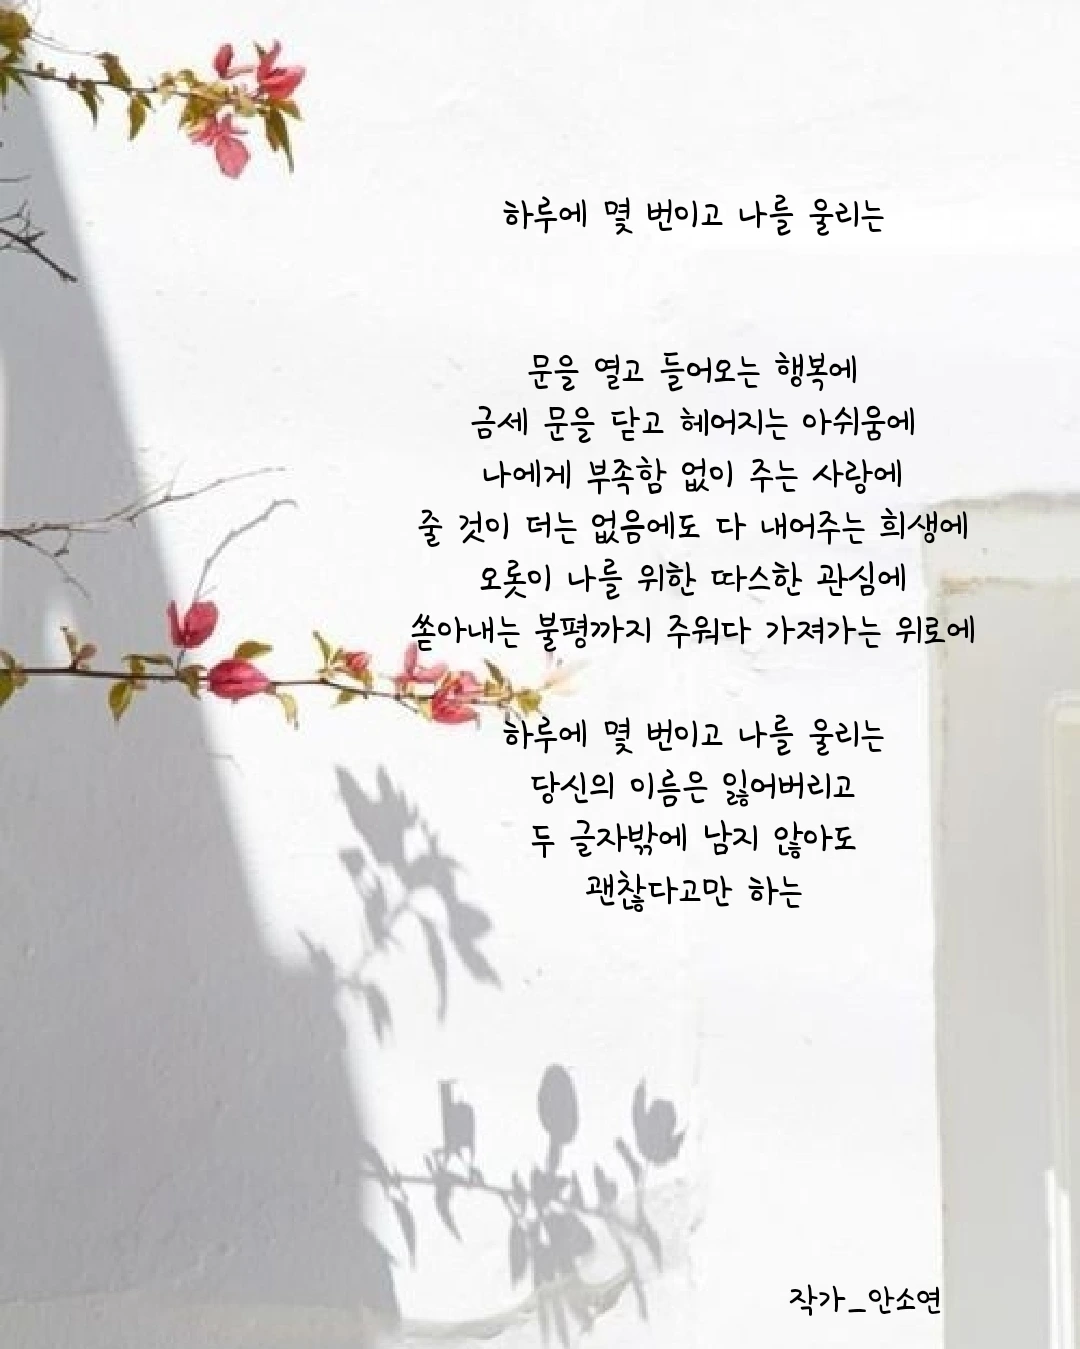 하루에 몇 번이고 나를 울리는
문을 열고 들어오는 행복에
금세 문을 닫고 헤어지는 아쉬움에
나에게 부족함 없이 주는 사랑에
줄 것이 더는 없음에도 다 내어주는 희생에
오롯이 나를 위한 따스한 관심에
쏟아내는 불평까지 주워다 가져가는 위로에
하루에 몇 번이고 나를 울리는
당신의 이름은 잃어버리고
두 글자밖에 남지 않아도
괜찮다고만 하는
작가_안소연